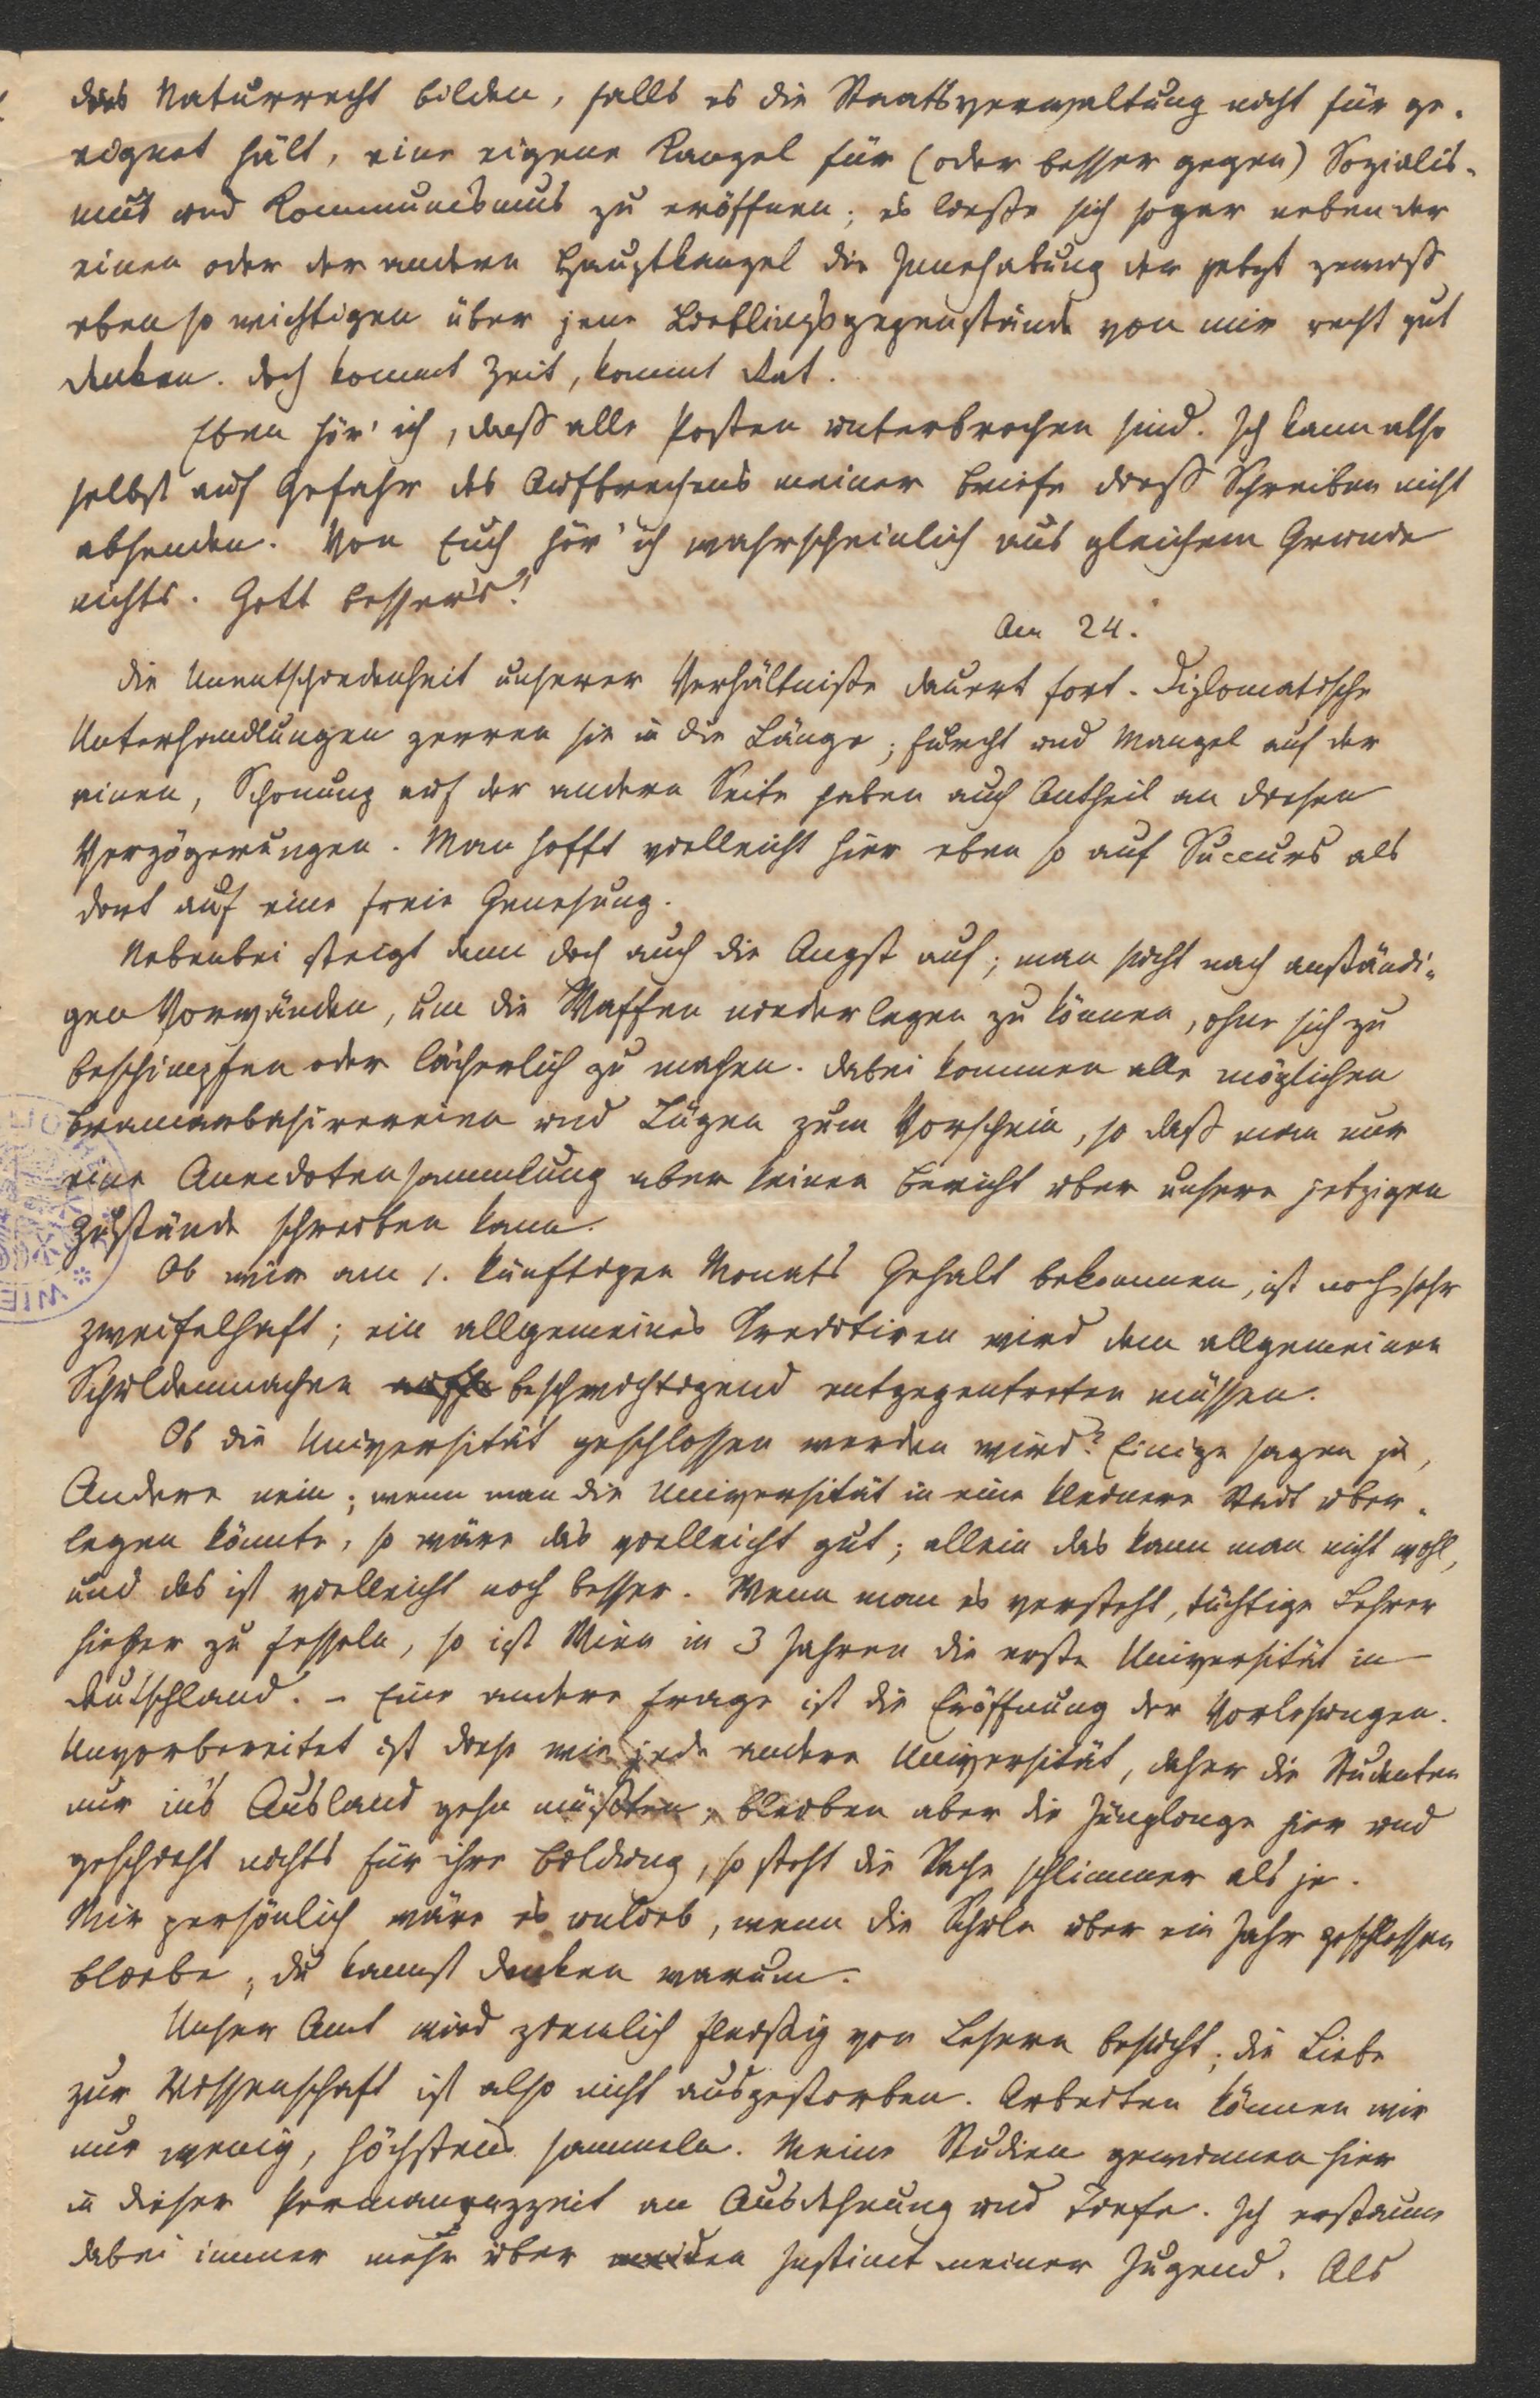 das Naturrecht bilden, falls es die Staatsverwaltung nicht für ge-
eignet hält, eine eigene Kanzel für (oder besser gegen) Sozialis-
mus und Kommunismus zu eröffnen; es ließe sich sogar neben der
einen oder der andern Hauptkanzel die Innehabung der jetzt gewiß
eben so wichtigen über jene Lieblingsgegenstände von mir recht gut
denken. Doch kommt Zeit, kommt Rat.
Eben hör' ich, daß alle Posten unterbrochen sind. Ich kann also
selbst auf Gefahr des Aufbrechens meiner Briefe dieß Schreiben nicht
absenden. Von Euch hör' ich wahrscheinlich aus gleichem Grunde
nichts. Gott besser's!
Am 24.
Die Unentschiedenheit unserer Verhältniße dauert fort. Diplomatische
Unterhandlungen zerren sie in die Länge; Furcht und Mangel auf der
einen, Schonung auf der andern Seite haben auch Antheil an diesen
Verzögerungen. Man hofft vielleicht hier eben so auf Succurs als
dort auf eine freie Genesung.
Nebenbei steigt denn doch auch die Angst auf; man sucht nach anständi-
gen Vorwänden, um die Waffen niederlegen zu können, ohne sich zu
beschimpfen oder lächerlich zu machen. Dabei kommen alle möglichen
Bramarbasirereien und Lügen zum Vorschein, so daß man nur
eine Anecdotensammlung aber keinen Bericht über unsere jetzigen
Zustände schreiben kann.
Ob wir am 1. künftigen Monats Gehalt bekommen, ist noch sehr
zweifelhaft; ein allgemeines Creditiren wird dem allgemeinen
Schuldenmachen beschwichtigend entgegentreten müssen.
Ob die Universität geschlossen werden wird? Einige sagen ja,
Andere nein; wenn man die Universität in eine kleinere Stadt über-
legen könnte, so wäre das vielleicht gut; allein das kann man nicht wohl,
und das ist vielleicht noch besser. Wenn man es versteht, tüchtige Lehrer
hieher zu fesseln, so ist Wien in 3 Jahren die erste Universität in
Deutschland. – Eine andere Frage ist die Eröffnung der Vorlesungen.
Unvorbereitet ist diese wie jede andere Universität, daher die Studenten
nur in's Ausland gehn müßten; bleiben aber die Jünglinge hier und
geschieht nichts für ihre Bildung, so steht die Sache schlimmer als je.
Mir persönlich wäre es unlieb, wenn die Schule über ein Jahr geschlossen
bliebe; du kannst denken warum.
Unser Amt wird ziemlich fleißig von Lesern besucht; die Liebe
zur Wissenschaft ist also nicht ausgestorben. Arbeiten können wir
nur wenig, höchstens sammeln. Meine Studien gewinnen hier
in dieser Permanenzzeit an Ausdehnung und Tiefe. Ich erstaune
dabei immer mehr über den Instinct meiner Jugend. Als